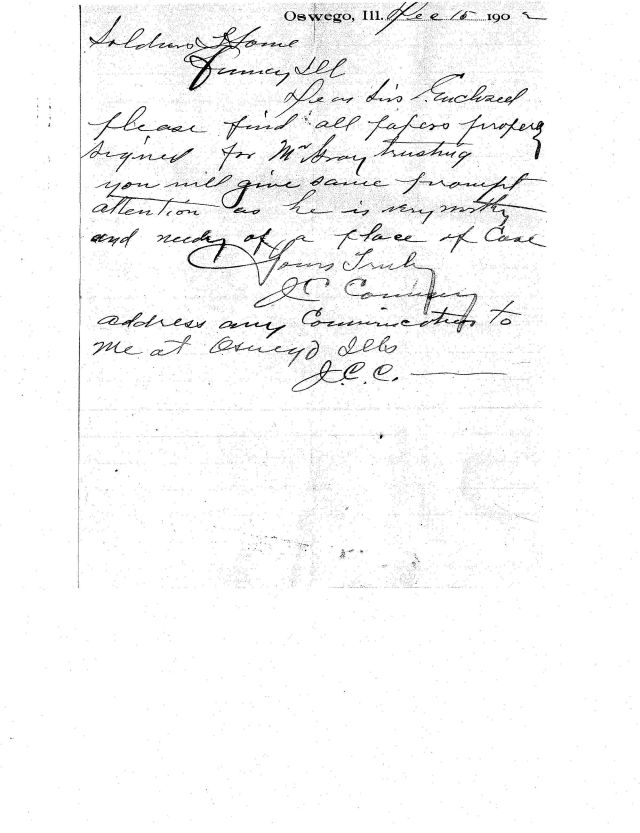 Oswego, Ill. Dec 15 1902
Soldiers Home
Quincy Ill
Dear Sirs Enclosed
please find all papers properly
signed for Mr Gray trusting
you will give same prompt
attention as he is very worthy
and needy of a place of Care
Yours Truly
J C
address any Communication to
me at Oswego Ills
J.C.C.